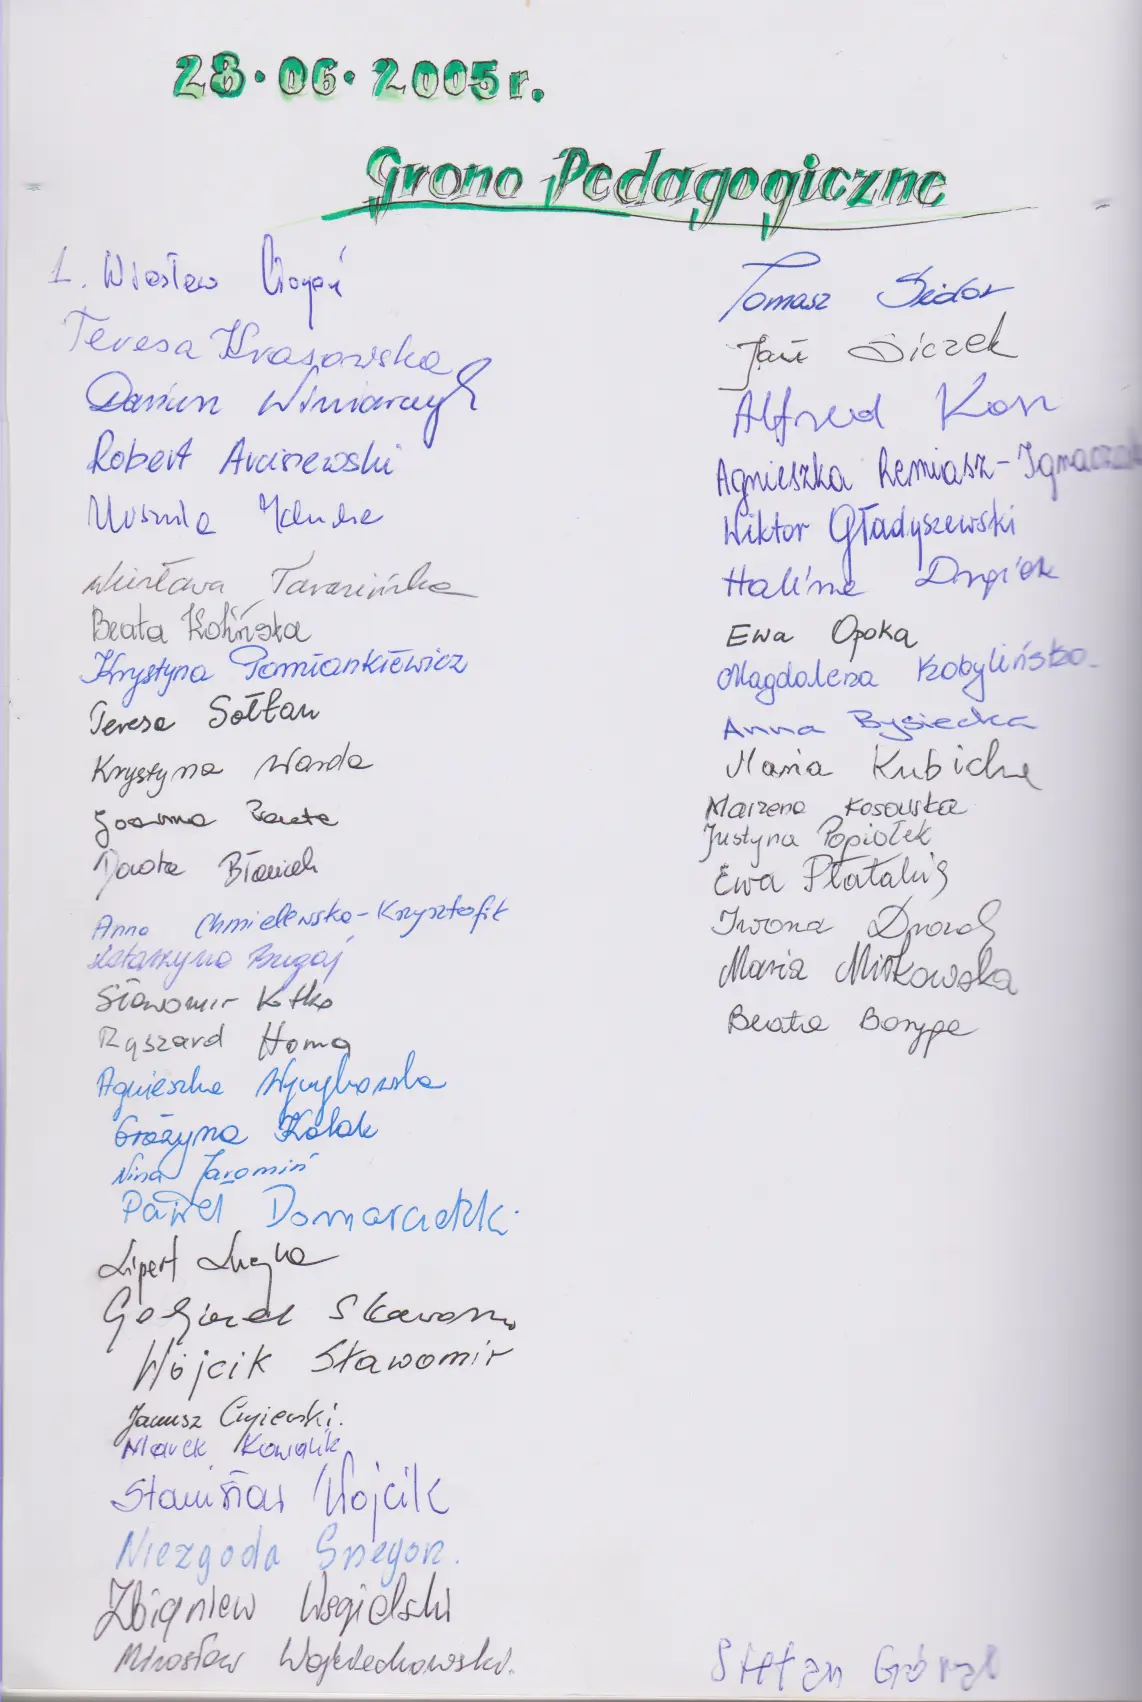 28.06.2005r.
Grono Pedagogiczne
1. Wiesław
Teresa Krasowska
Darium Winiarczyk
Robert Arciszewski
Urszula
Wiesława Tarasińska
Beata Kolińska
Krystyna Pomiankiewicz
Teresa Sołtan
Krystyna Warda
Joanna
Dorota Błaniak
Anna Chmielewska-Krzysztofik
Katarzyna Bugaj
Sławomir Kotko
Ryszard Homa
Agnieszka
Grażyna Kołak
Nina Jaromin
Paweł Domaradzki
Lipert
Wójcik Sławomir
Janusz
Marek Kowalik
Stanisław Wójcik
Niezgoda
Zbigniew Węgielski
Mirosław Wojciechowski.
Tomasz Sidor
Jan Siczek
Alfred Kon
Agnieszka Remiasz-Ignaczak
Wiktor Gładyszewski
Halina
Ewa Opoka
Magdalena Kobylińska
Anna Bysiecka
Maria Kubicka
Marzena Kosowska
Justyna Popiołek
Ewa Płatakis
Iwona Drozd
Maria Mirkowska
Beata
Stefan